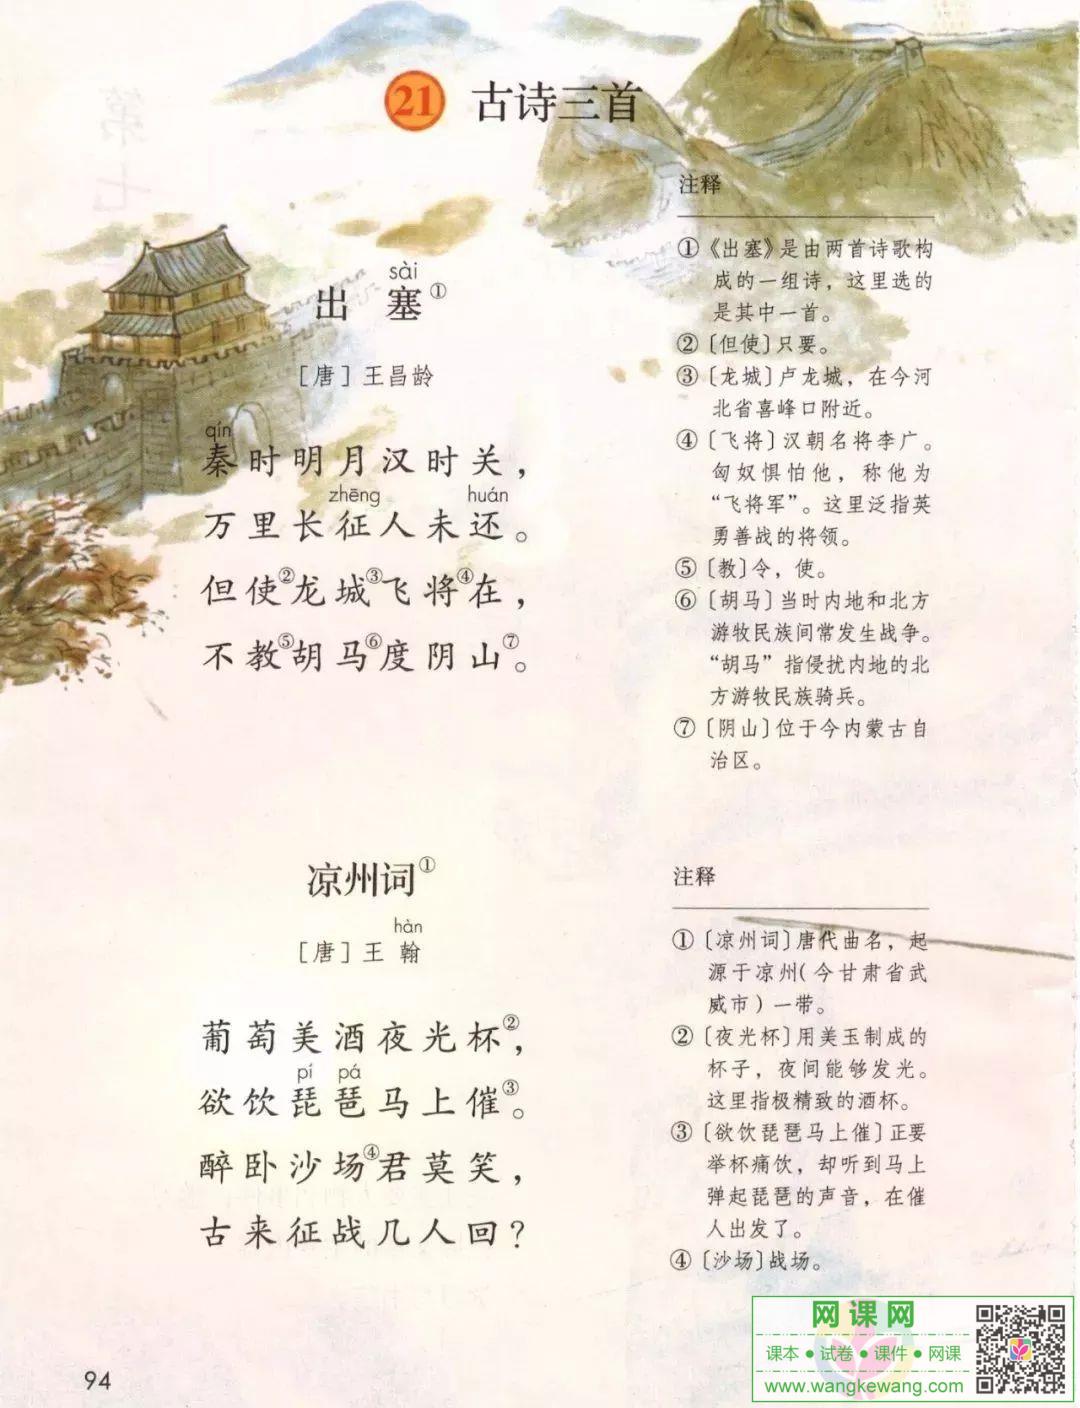 21 古诗三首
sài
出 塞①
[唐] 王昌龄
qín
秦时明月汉时关，
zhēng huán
万里长征人未还。
但使②龙城③飞将④在，
不教⑤胡马⑥度阴山⑦。
注释
①《出塞》是由两首诗歌构
成的一组诗，这里选的
是其中一首。
②〔但使〕只要。
③〔龙城〕卢龙城，在今河
北省喜峰口附近。
④〔飞将〕汉朝名将李广。
匈奴惧怕他，称他为
“飞将军”。这里泛指英
勇善战的将领。
⑤〔教〕令，使。
⑥〔胡马〕当时内地和北方
游牧民族间常发生战争。
“胡马”指侵扰内地的北
方游牧民族骑兵。
⑦〔阴山〕位于今内蒙古自
治区。
凉州词①
hàn
[唐] 王 翰
葡萄美酒夜光杯②，
pí pá
欲饮琵琶马上催③。
醉卧沙场④君莫笑，
古来征战几人回？
注释
①〔凉州词〕唐代曲名，起
源于凉州（今甘肃省武
威市）一带。
②〔夜光杯〕用美玉制成的
杯子，夜间能够发光。
这里指极精致的酒杯。
③〔欲饮琵琶马上催〕正要
举杯痛饮，却听到马上
弹起琵琶的声音，在催
人出发了。
④〔沙场〕战场。
94
网课网
课本●试卷●课件●网课
www.wangkewang.com
第七